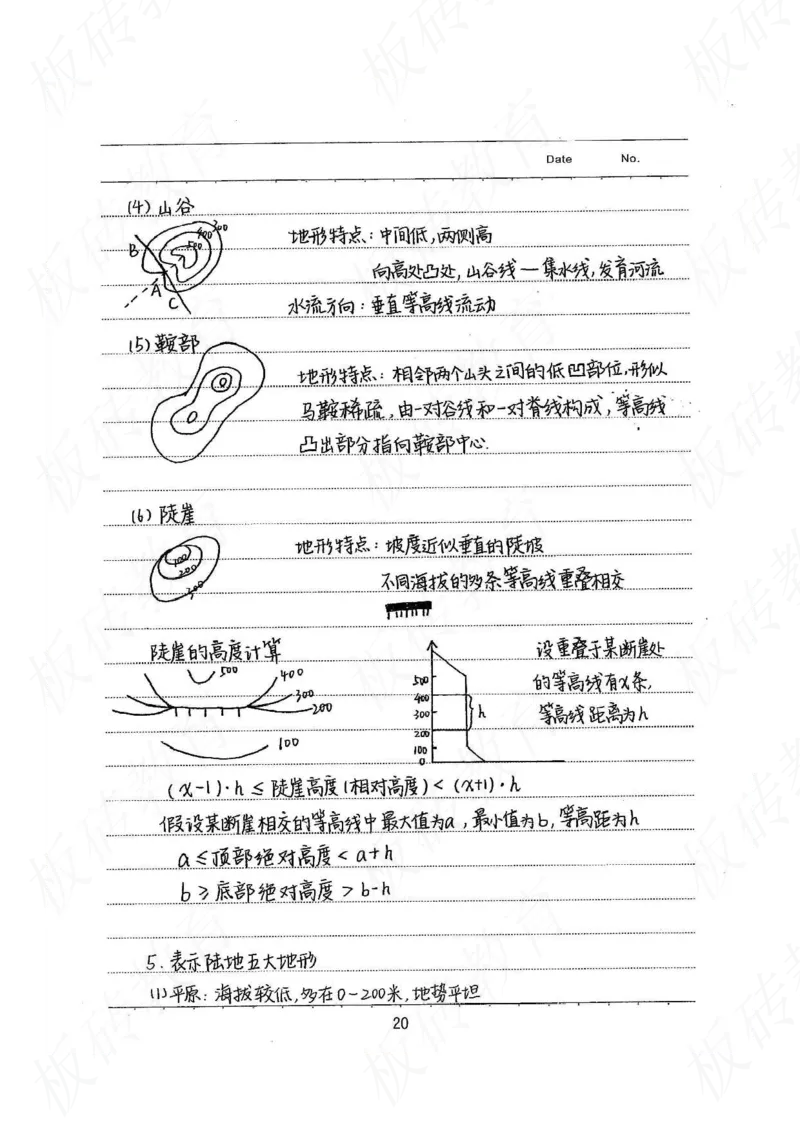 Date No.
(4) 山谷
300
400
500
B
A
C
地形特点：中间低，两侧高
向高处凸处，山谷线—集水线，发育河流
水流方向：垂直等高线流动
(5) 鞍部
地形特点：相邻两个山头之间的低凹部位，形似
马鞍稀疏，由一对谷线和一对脊线构成，等高线
凸出部分指向鞍部中心.
(6) 陡崖
100
200
300
地形特点：坡度近似垂直的陡坡
不同海拔的多条等高线重叠相交
陡崖的高度计算
500
400
300
200
100
500
400
300
200
100
0
h
设重叠于某断崖处
的等高线有x条，
等高线距离为h
(x-1)·h ≤ 陡崖高度(相对高度) < (x+1)·h
假设某断崖相交的等高线中最大值为a，最小值为b，等高距为h
a ≤ 顶部绝对高度 < a+h
b ≥ 底部绝对高度 > b-h
5. 表示陆地五大地形
(1) 平原：海拔较低，多在0-200米，地势平坦
20
板砖教育